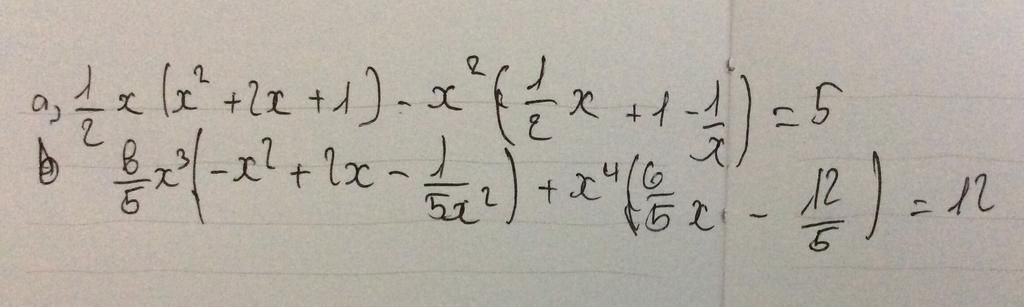 a, \frac{1}{2}x(x^2+2x+1)-x^2(\frac{1}{2}x+1-\frac{1}{x})=5
b \frac{6}{5}x^3(-x^2+2x-\frac{1}{5x^2})+x^4(\frac{6}{5}x-\frac{12}{5})=12